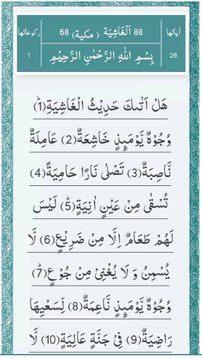 آیاتها 88 اَلْغَاشِيَةِ ( مكية ) 68 ركوعاتها
26 بِسْمِ اللهِ الرَّحْمٰنِ الرَّحِيْمِ 1
هَلْ اَتٰىكَ حَدِيْثُ الْغَاشِيَةِ(1)
وُجُوْهٌ يَّوْمَىِٕذٍ خَاشِعَةٌ(2) عَامِلَةٌ
نَّاصِبَةٌ(3) تَصْلٰى نَارًا حَامِيَةً(4)
تُسْقٰى مِنْ عَيْنٍ اٰنِيَةٍ(5) لَيْسَ
لَهُمْ طَعَامٌ اِلَّا مِنْ ضَرِيْعٍ(6) لَّا
يُسْمِنُ وَ لَا يُغْنِيْ مِنْ جُوْعٍ(7)
وُجُوْهٌ يَّوْمَىِٕذٍ نَّاعِمَةٌ(8) لِّسَعْيِهَا
رَاضِيَةٌ(9) فِيْ جَنَّةٍ عَالِيَةٍ(10) لَّا